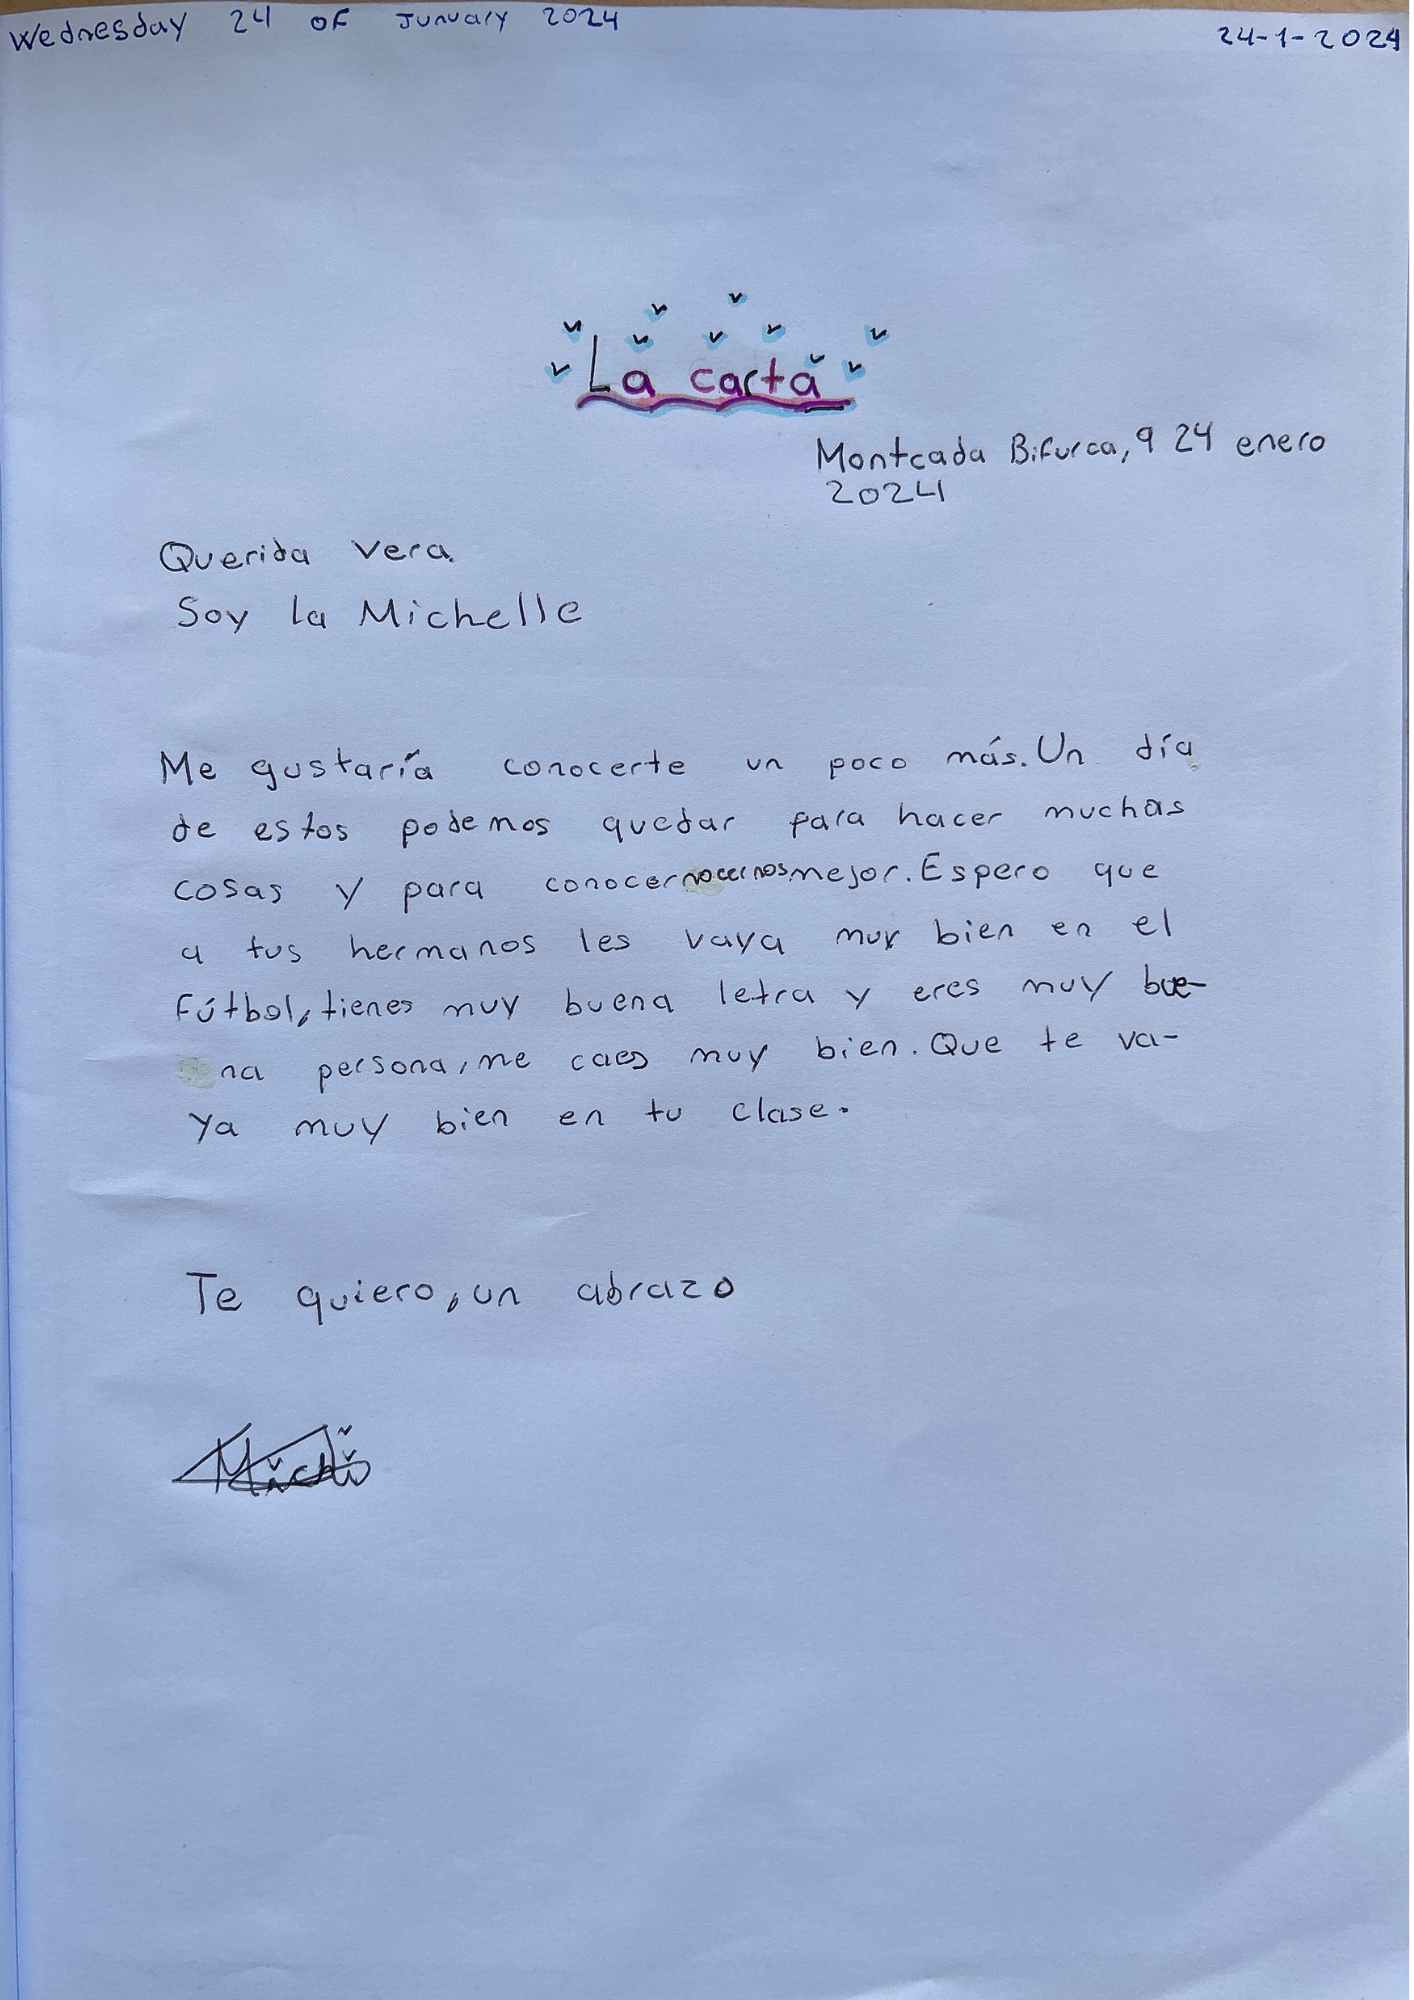 Wednesday 24 of Junuary 2024
24-1-2024
La carta
Montcada Bifurca, 9 24 enero
2024
Querida Vera
Soy la Michelle
Me gustaría conocerte un poco más. Un día
de estos podemos quedar para hacer muchas
cosas y para conocernocernos mejor. Espero que
a tus hermanos les vaya muy bien en el
fútbol, tienes muy buena letra y eres muy bue-
na persona, me caes muy bien. Que te va-
ya muy bien en tu clase.
Te quiero, un abrazo
Michi